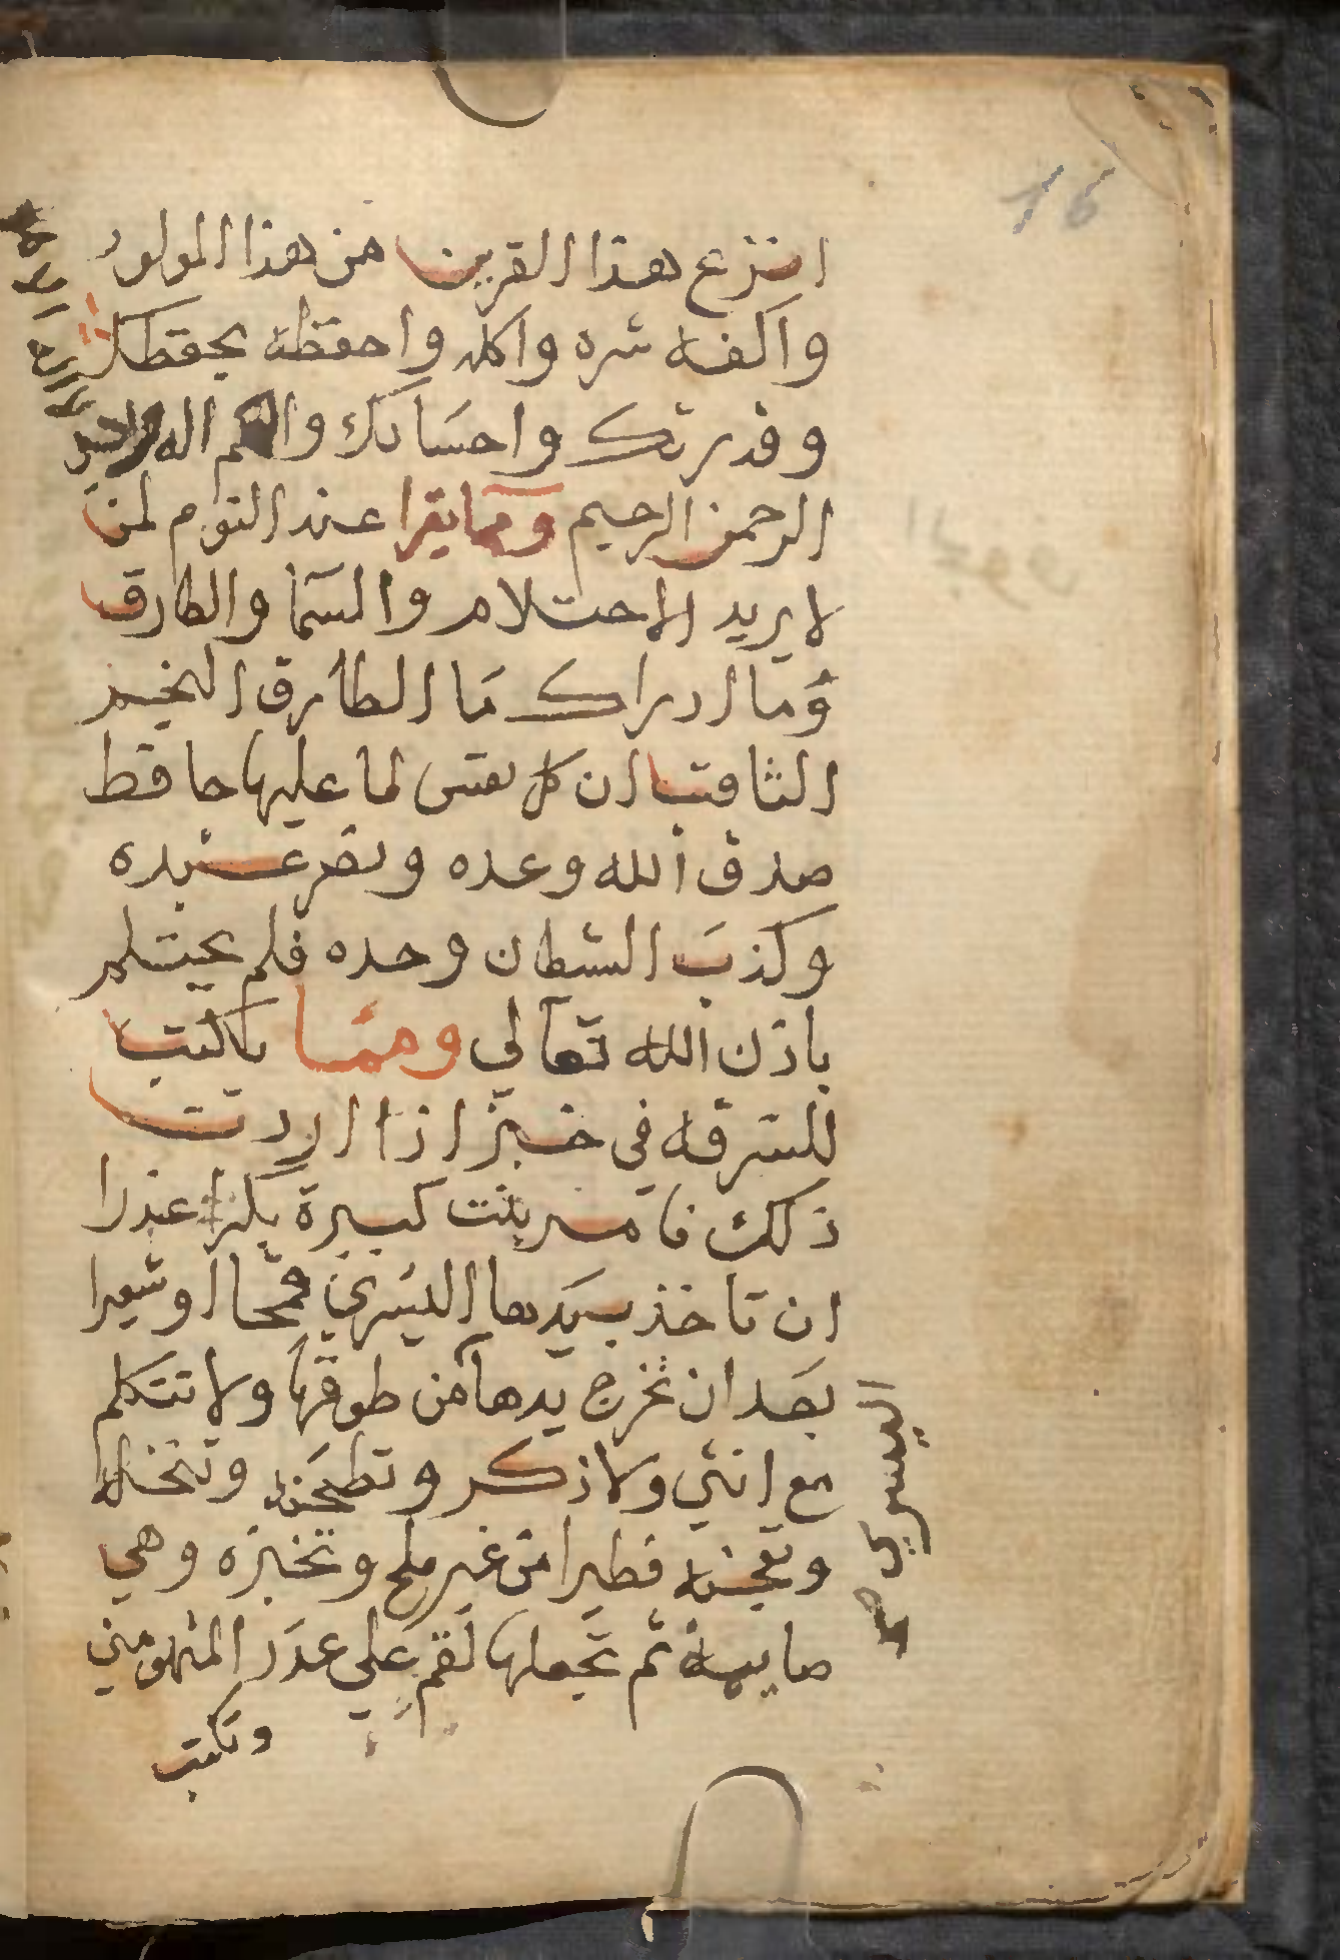 16
انزع هذا القرين من هذا المولود
واكفه شره واكلاه واحفظه بحفظك
وقدرتك واحسانك والهكم اله واحد
الرحمن الرحيم ومما يقرا عند النوم لمن
لا يريد الاحتلام والسما والطارق
وما ادراك ما الطارق النجم
الثاقب ان كل نفس لما عليها حافظ
صدق الله وعده ونصر عبده
وكذب الشطان وحده فلم يحتلم
باذن الله تعالي ومما يكتب
للسرقه في خبز اذا اردت
ذلك فامر بنت كبيرة بكرا عذرا
ان تاخذ بيدها اليسري قمحا او شعيرا
بعد ان تخرج يدها من طوقها ولا تتكلم
مع انثي ولا ذكر وتطحنه وتنخله
وتعجنه فطيرا من غير ملح وتخبزه وهي
صايمة ثم تجعلها لقم علي عدد المتهومين
وتكتب
اليسري صح